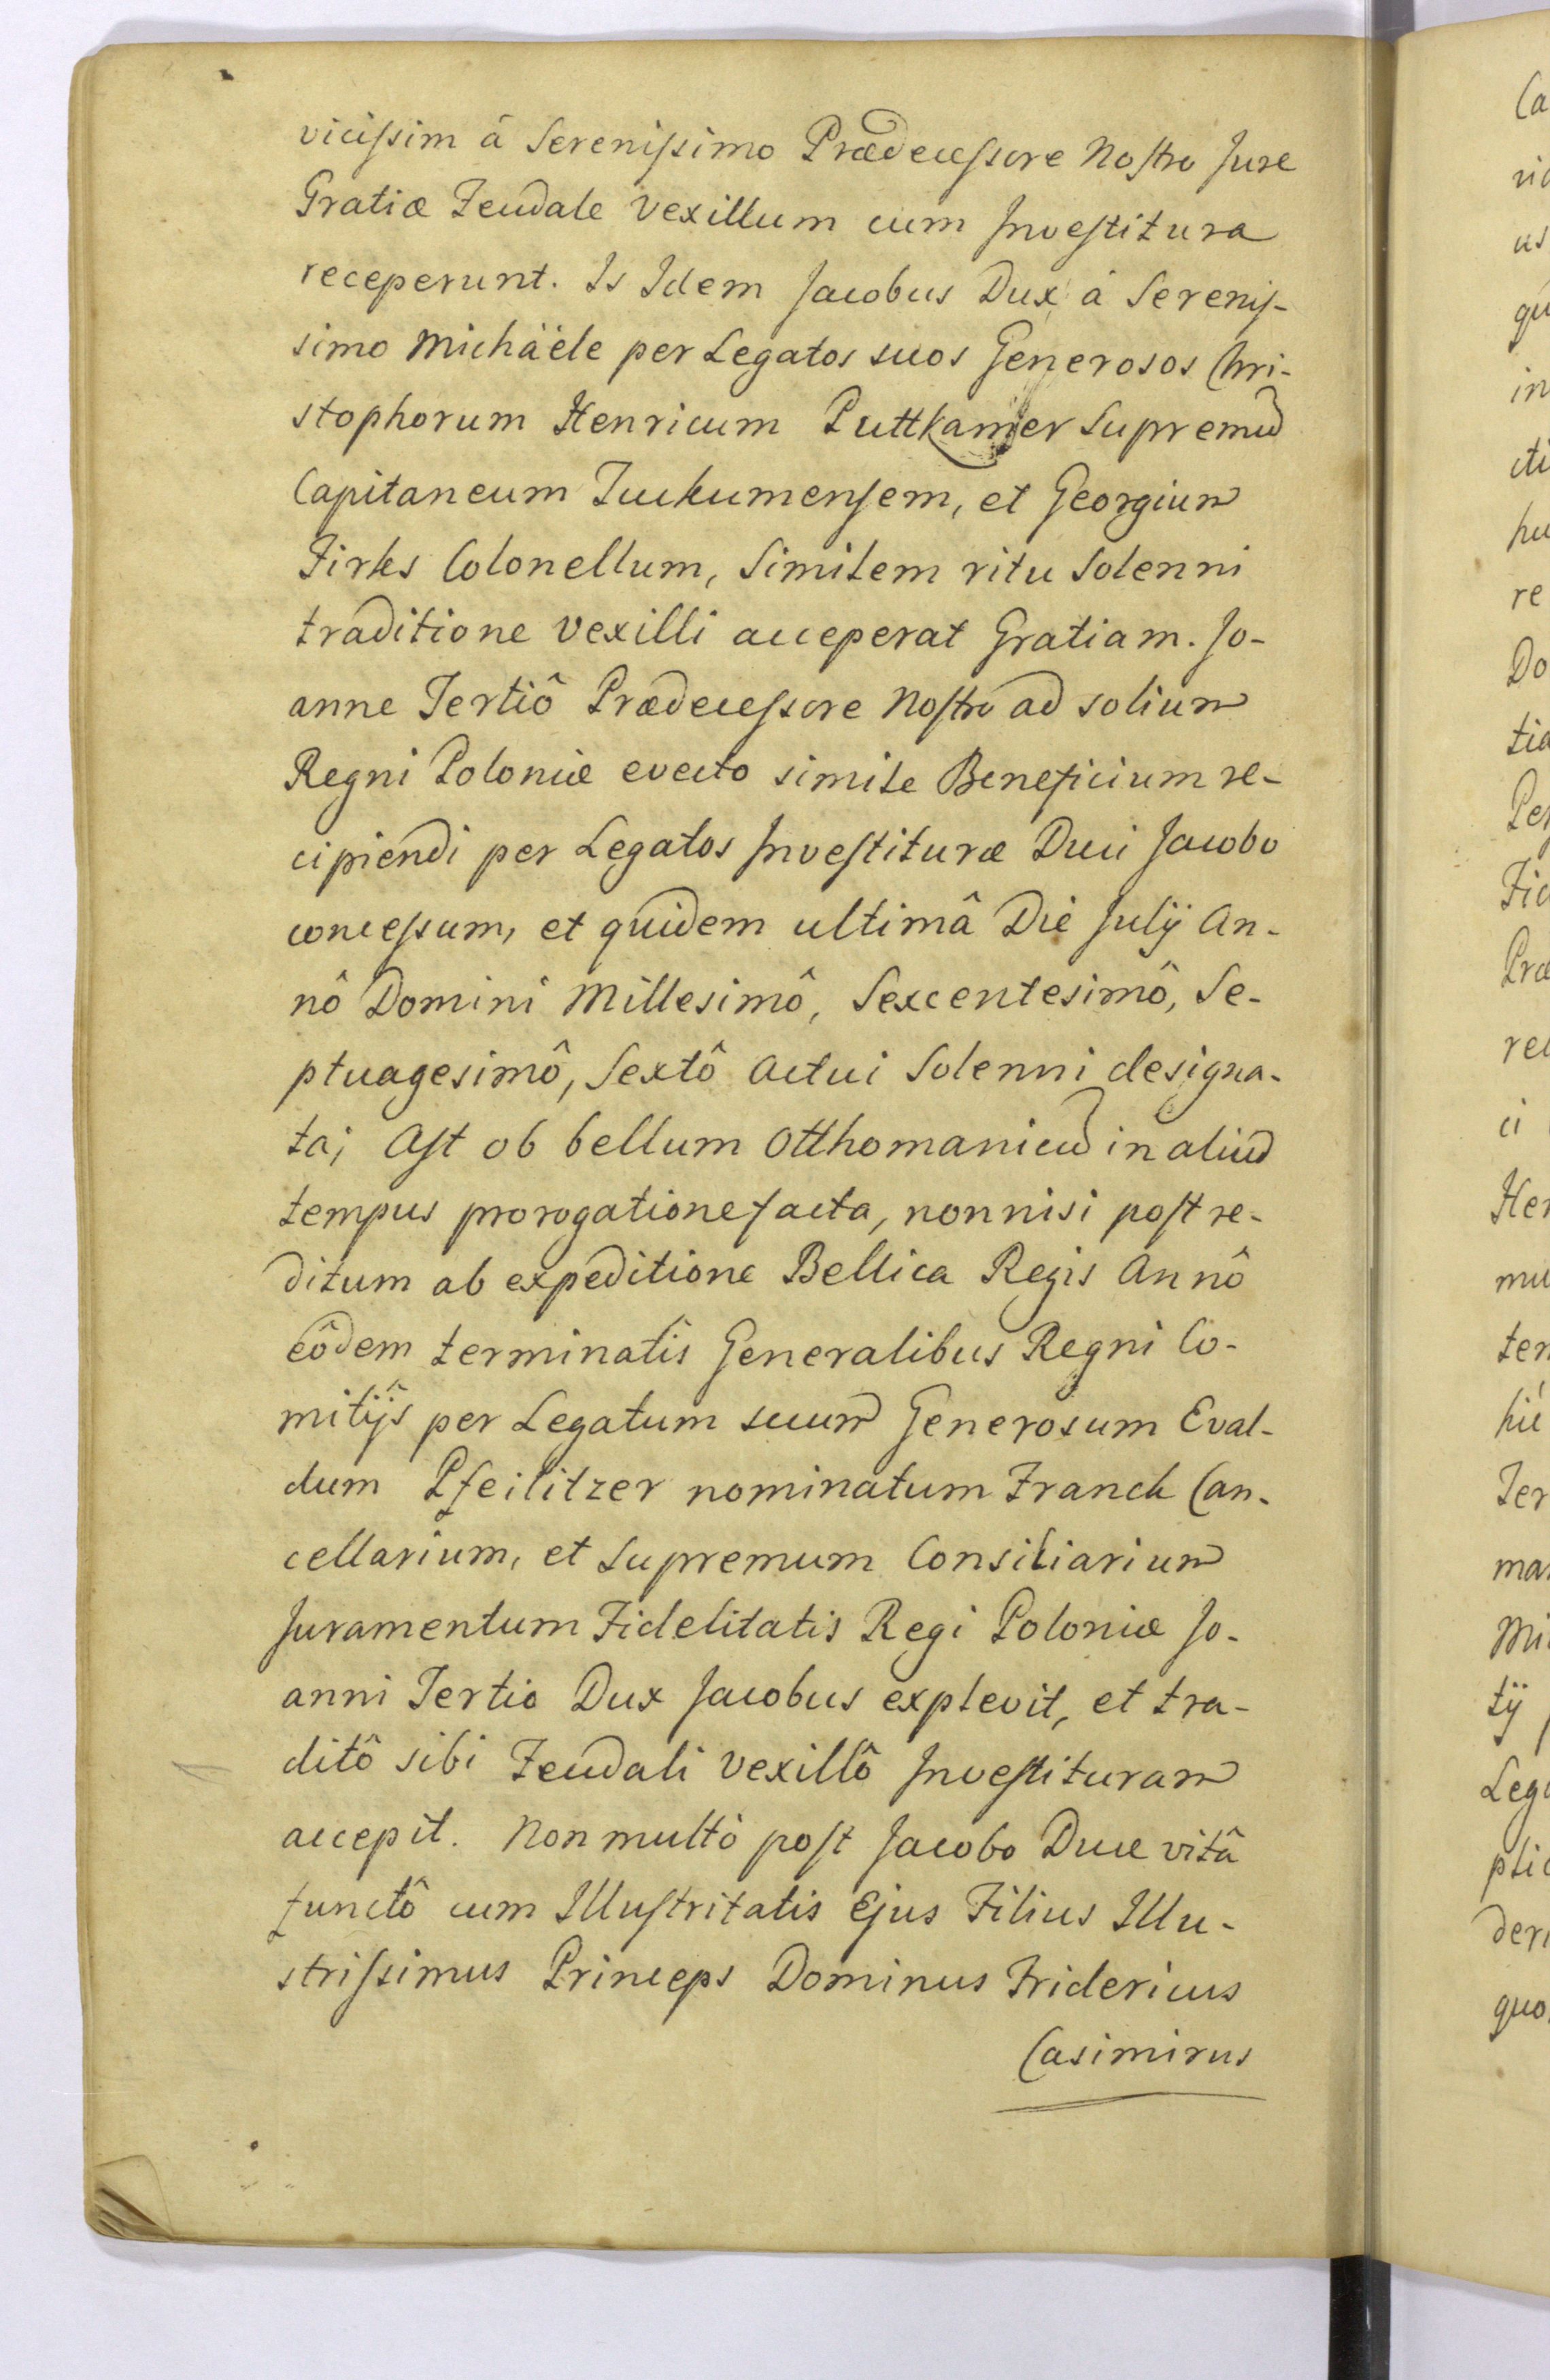 viciſsim â Sereniſsimo Prædeceſsore Noſtro Jure
Gratiæ Feudale Vexillum cum Inveſtitura
receperunt. Is Idem Jacobus Dux â Sereniſ-
simo Michäéle per Legatos suos Generosos Chri-
stophorum Henricum Puttkamer Supremū
Capitaneum Tuckumenſem, et Georgium
Firks Colonellum, Similem ritu Solenni
traditione Vexilli acceperat Gratiam. Jo-
anne Tertiô Prædeceſsore Noſtro ad solium
Regni Poloniæ evecto simile Beneficium re-
cipiendi per Legatos Inveſtituræ Duci Jacobo
conceſsum, et quidem ultimâ Die Julÿ An-
nô Domini Millesimô, Sexcentesimô, Se-
ptuagesimô, Sextô Actui Solenni designa-
ta; Aſt ob bellum Otthomanicū in aliud
tempus prorogatione facta, nonnisi poſt re-
ditum ab expeditione Bellica Regis Annô
eôdem terminatis Generalibus Regni Co-
mitÿs per Legatum suum Generosum Eval-
dum Pfeilitzer nominatum Franck Can-
cellarium, et Supremum Consiliarium
Juramentum Fidelitatis Regi Poloniæ Jo-
anni Tertio Dux Jacobus explevit, et tra-
ditô sibi Feudali Vexillô Inveſtituram
accepit. Non multò poſt Jacobo Duce vitâ
functô cum Illuſtritatis Ejus Filius Illu-
striſsimus Princeps Dominus Fridericus
Casimirus